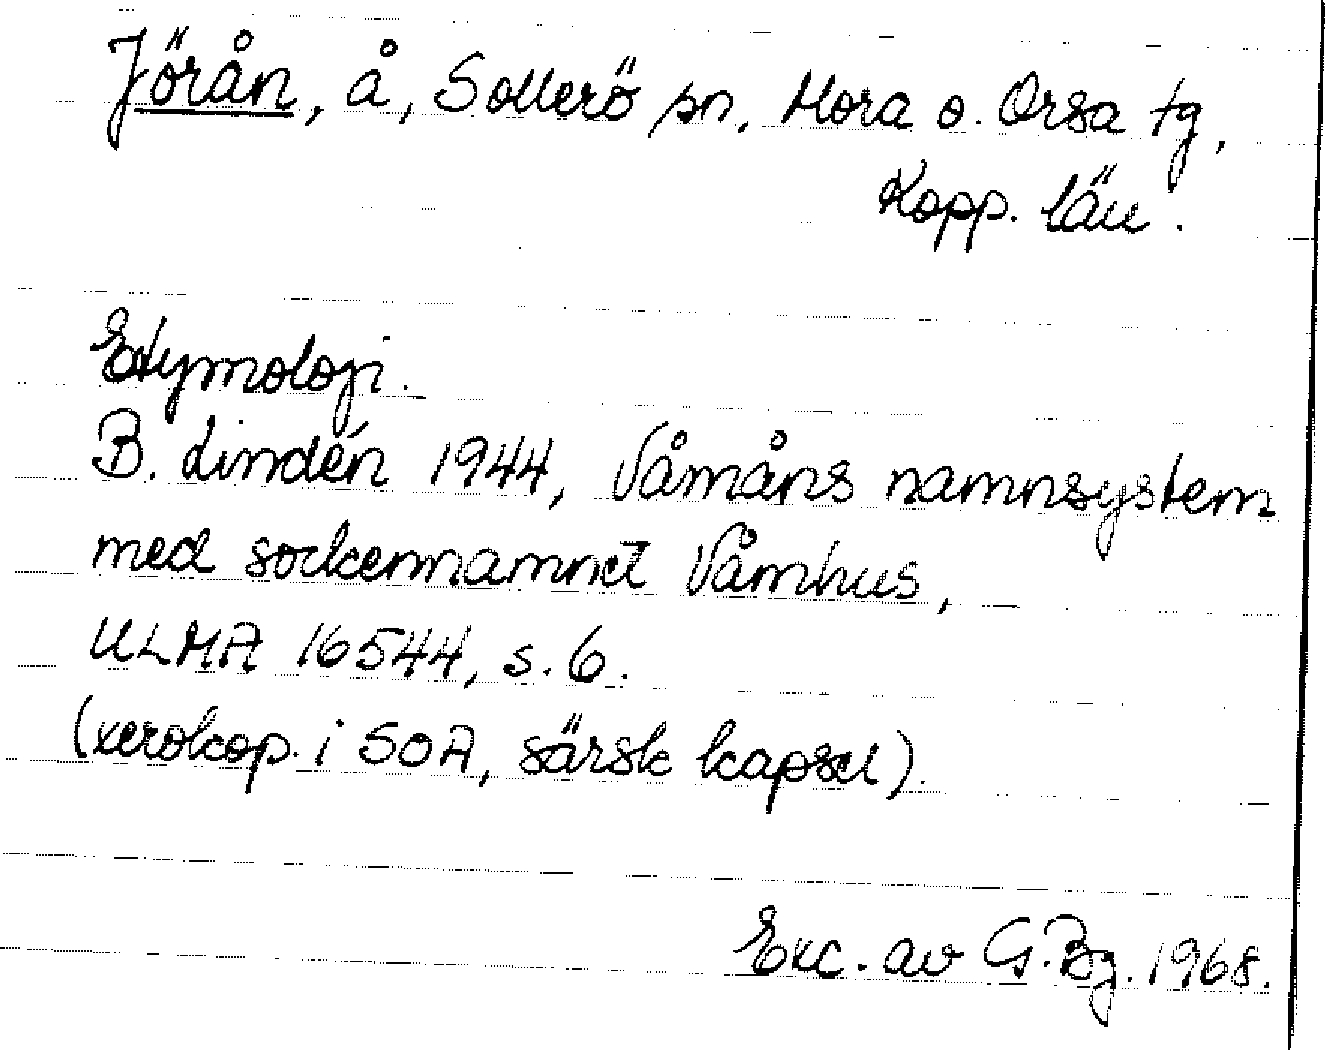 Jörån, å, Sollerö sn, Mora o. Orsa tg,
Kopp. län.
Etymologi.
B. Lindén 1944, Våmåns namnsystem
med sockennamnet Våmhus,
ULMA 16544, s. 6.
(xerokop. i SOA, särsk kapsel).
Exc. av G. Bg. 1968.